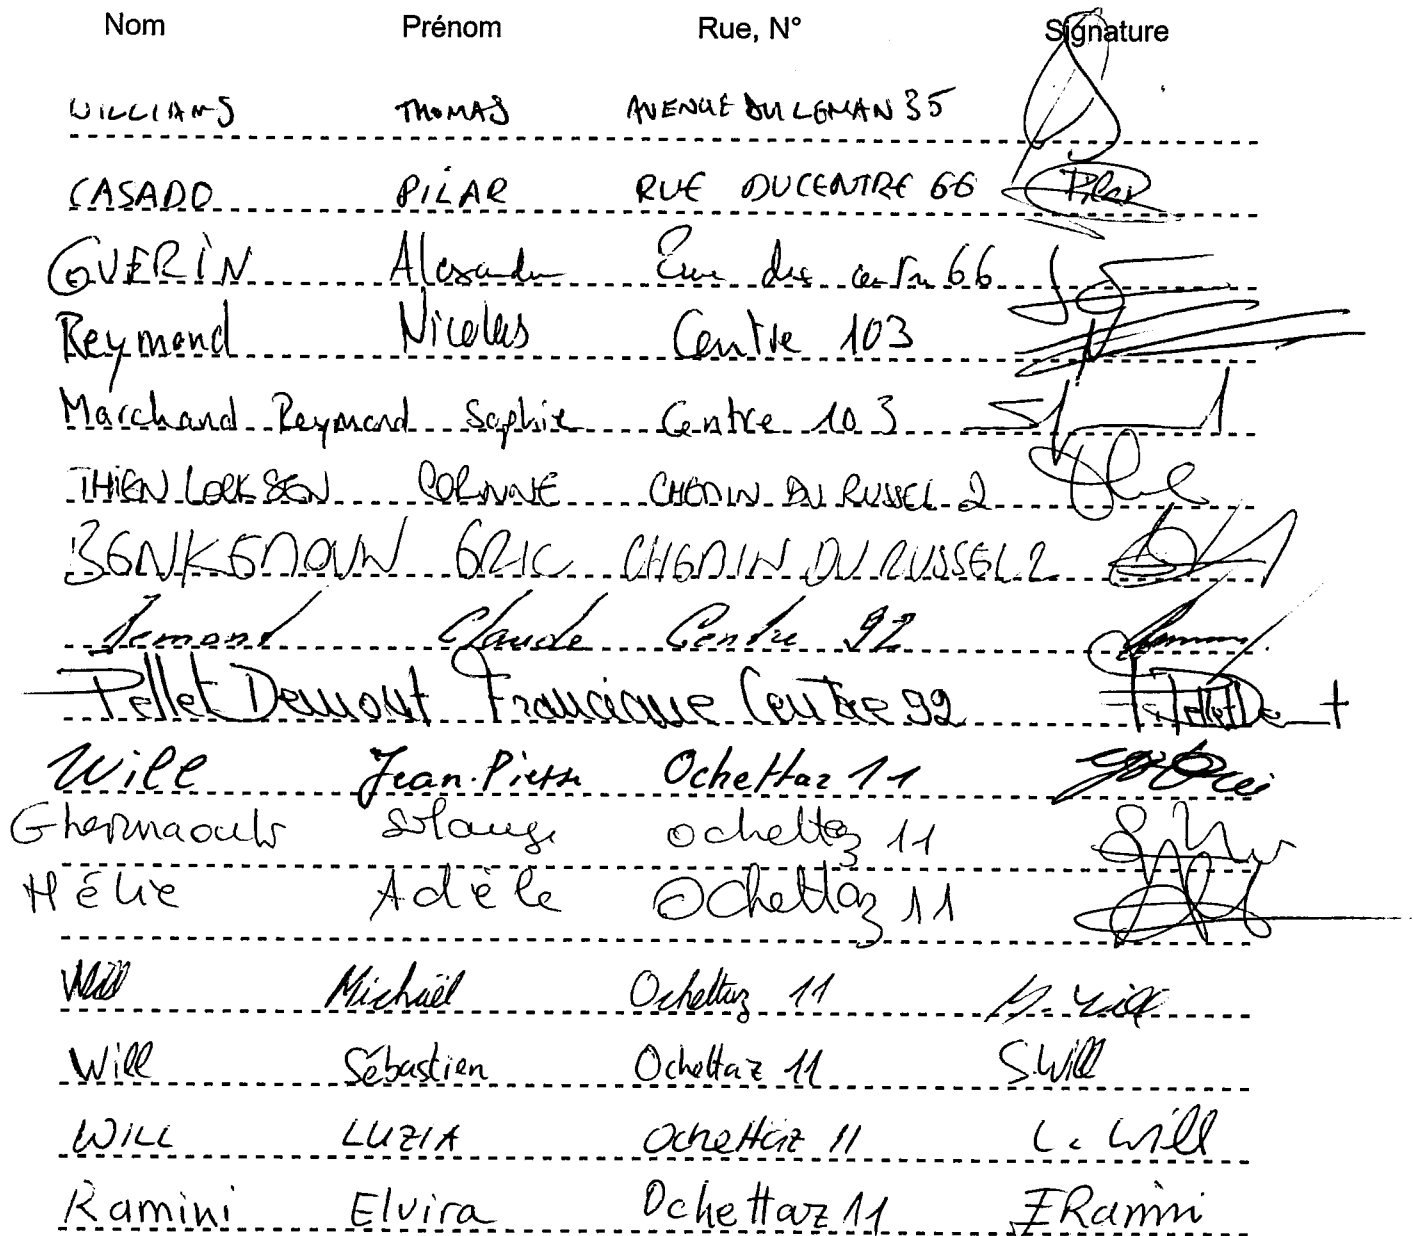 Nom Prénom Rue, N° Signature
WILLIAMS THOMAS AVENUE DU LEMAN 35
CASADO PILAR RUE DU CENTRE 66 Pilar
GUERIN Alexandre Rue du centre 66
Reymond Nicolas Centre 103
Marchand Reymond Sophie Centre 103
THIEN CORINNE CHEMIN DU RUSSEL 2
ERIC CHEMIN DU RUSSEL 2
Claude Centre 92
Pellet Demont Francique Centre 92
Will Jean-Pierre Ochettaz 11
Solange Ochettaz 11
Hélie Adèle Ochettaz 11
Will Michaël Ochettaz 11 M. Will
Will Sébastien Ochettaz 11 S. Will
WILL LUZIA Ochettaz 11 L. Will
Ramini Elvira Ochettaz 11 E Ramini